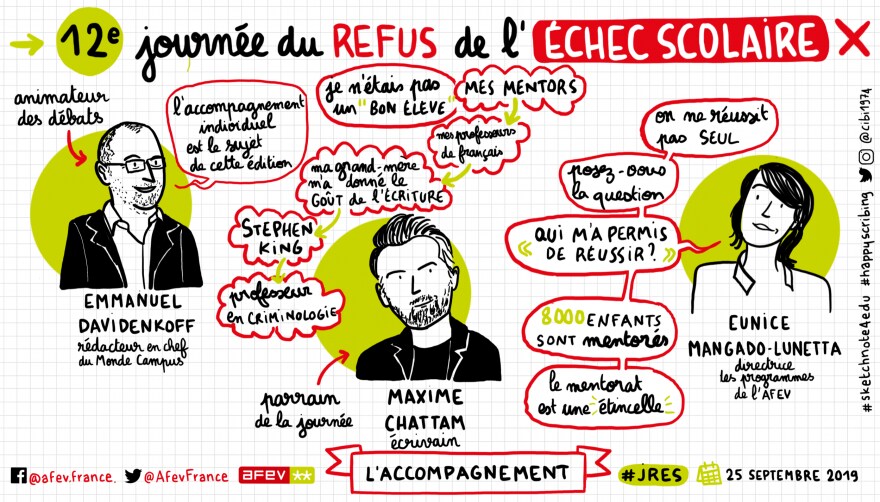 12e journée du REFUS de l'ÉCHEC SCOLAIRE
animateur
des débats
l'accompagnement
individuel
est le sujet
de cette édition
EMMANUEL
DAVIDENKOFF
rédacteur en chef
du Monde Campus
je n'étais pas
un "BON ÉLÈVE"
MES MENTORS
mes professeurs
de français
ma grand-mère
m'a donné le
GOÛT de l'ÉCRITURE
STEPHEN
KING
professeur
en CRIMINOLOGIE
parrain
de la journée
MAXIME
CHATTAM
écrivain
on ne réussit
pas SEUL
posez-vous
la question
« QUI M'A PERMIS
DE RÉUSSIR? »
8000 ENFANTS
SONT mentorés
le mentorat
est une étincelle
EUNICE
MANGADO-LUNETTA
directrice
des programmes
de l'AFEV
#sketchnote4edu #happyscribing @cibi1974
@afev.france. @AfevFrance afev
L'ACCOMPAGNEMENT
#JRES 25 SEPTEMBRE 2019